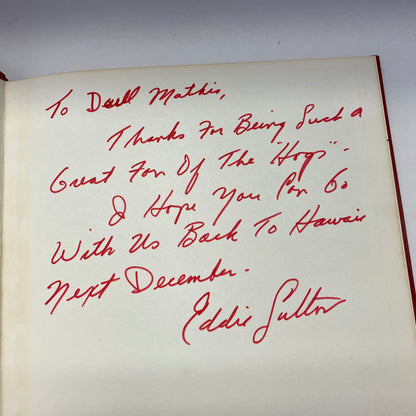 To Dell Mathis,
Thanks For Being Such a
Great Fan Of The "Hogs".
I Hope You Can Go
With Us Back To Hawaii
Next December.
Eddie Sutton